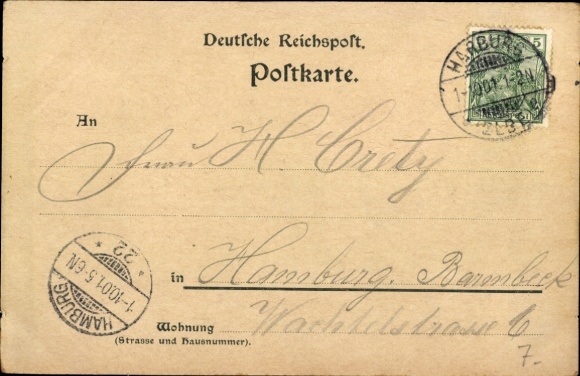 Deutsche Reichspost.
Postkarte.
5
HARBURG
1-10 01.1-2N
ELBE
An
Frau H Crety
22
1-10.01.5-6N
HAMBURG
in Hamburg. Barmbeck
Wohnung Wachtelstrasse 6
(Strasse und Hausnummer).
7.-